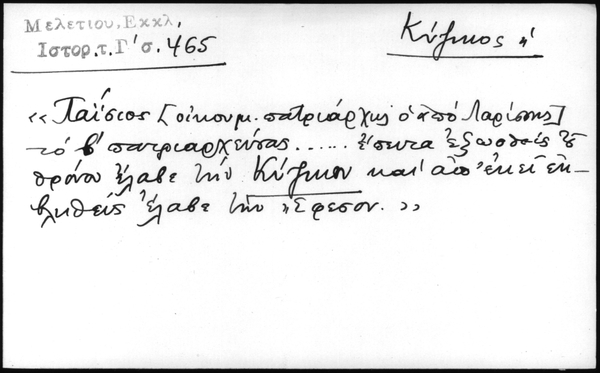 Μελετιου, Εκκλ,
Ιστορ.τ.Γ' σ. 465
Κύζικος
«Παΐσιος [οἰκουμ. πατριάρχης ὁ ἀπό Λαρίσσης]
τό β' πατριαρχεύσας ...... ἔπειτα ἐξωσθείς τοῦ
θρόνου ἔλαβε τήν Κύζικον καί ἀπ' ἐκεῖ ἐκ-
βληθείς ἔλαβε τήν Ἔφεσον.»